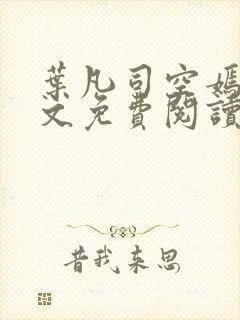 葉凡司空嫣
文免費閱讀
昔我来思